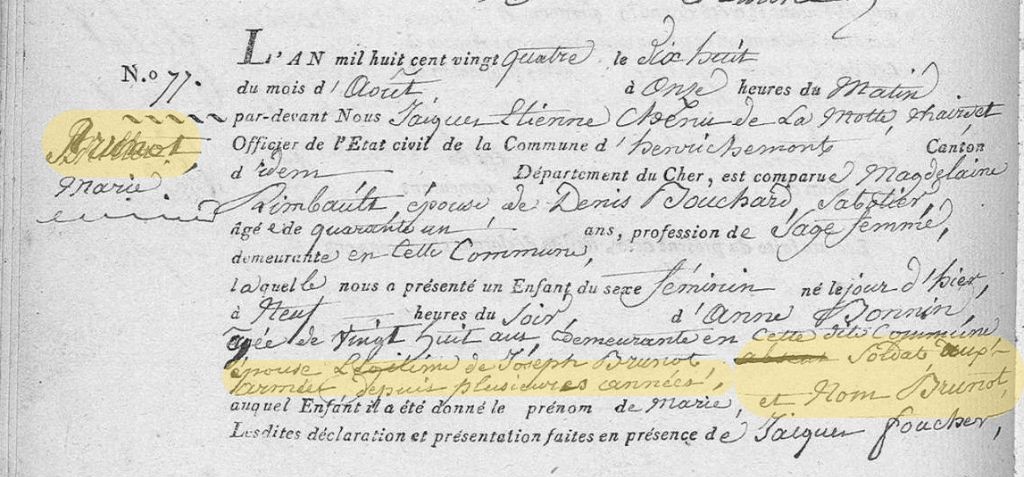 N.º 77.
Brunot
Marie
L'AN mil huit cent vingt quatre le dix huit
du mois d'Août à Onze heures du Matin
par-devant Nous Jaiques Etienne Chenu de La Motte, maire et
Officier de l'Etat civil de la Commune d'henrichemont Canton
d'idem Département du Cher, est comparue Magdelaine
Rimbault, épouse de Denis Bouchard, Sabotier,
âgée de quarante un ans, profession de Sage femme,
demeurante en Cette Commune,
laquelle nous a présenté un Enfant du sexe féminin né le jour d'hier,
à Neuf heures du Soir, d'Anne Bonnin
agée de vingt huit ans demeurante en Cette dite Commune
épouse Légitime de Joseph Brunot Soldat aux
armées depuis plusieures années,
auquel Enfant il a été donné le prénom de Marie, et Nom Brunot,
Lesdites déclaration et présentation faites en présence de Jaiques foucher,